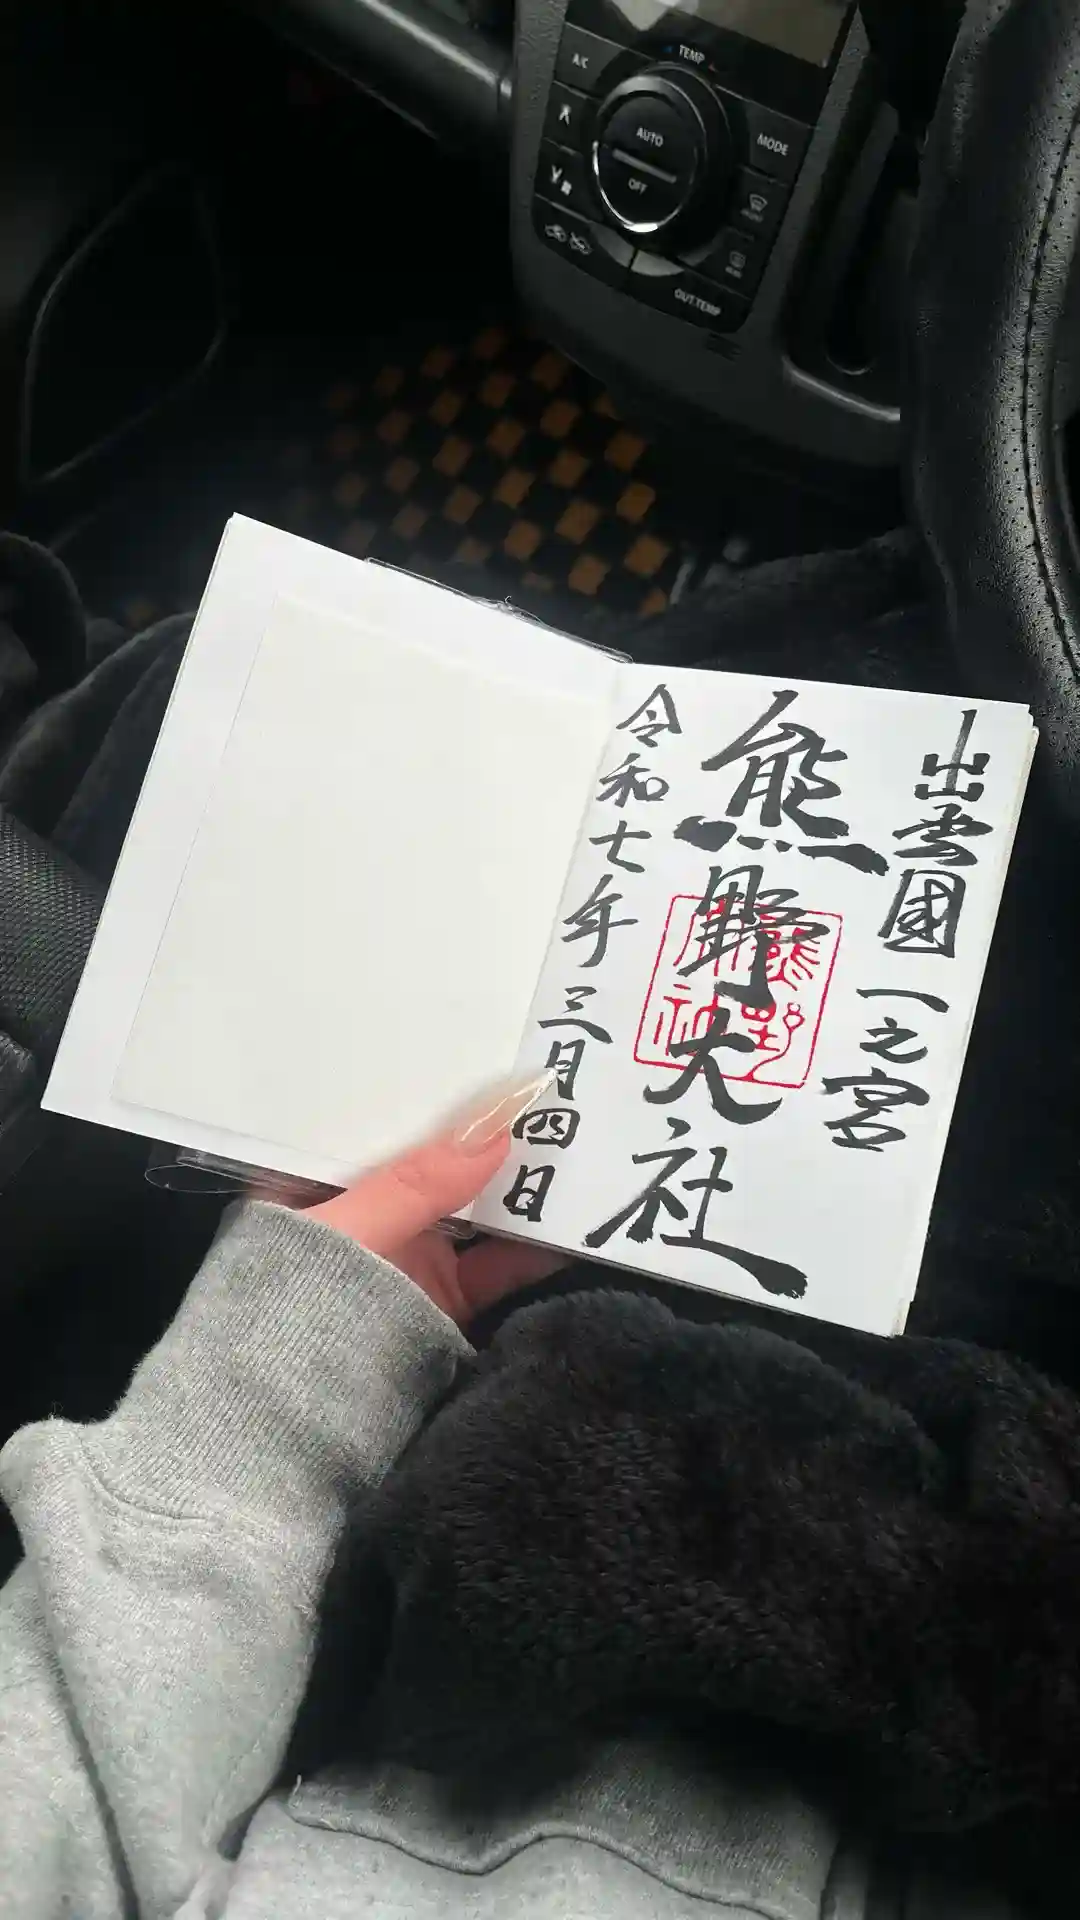 TEMP
A/C
AUTO
OFF
MODE
OUT TEMP
出雲國一之宮
熊野大社
令和七年三月四日